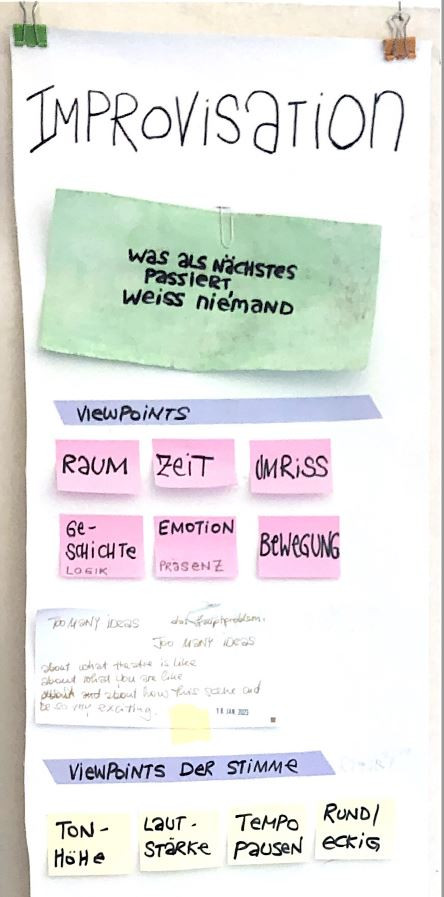 IMPROVISATION
WAS ALS NÄCHSTES
PASSIERT,
WEISS NIEMAND
VIEWPOINTS
RAUM
ZEIT
UMRISS
GE-
SCHICHTE
LOGIK
EMOTION
PRÄSENZ
BEWEGUNG
TOO MANY IDEAS das Hauptproblem.
TOO MANY IDEAS
about what theatre is like
about what you are like
and about how this scene
be so exciting.
18 JAN 2023
VIEWPOINTS DER STIMME
TON-
HÖHE
LAUT-
STÄRKE
TEMPO
PAUSEN
RUND/
ECKIG